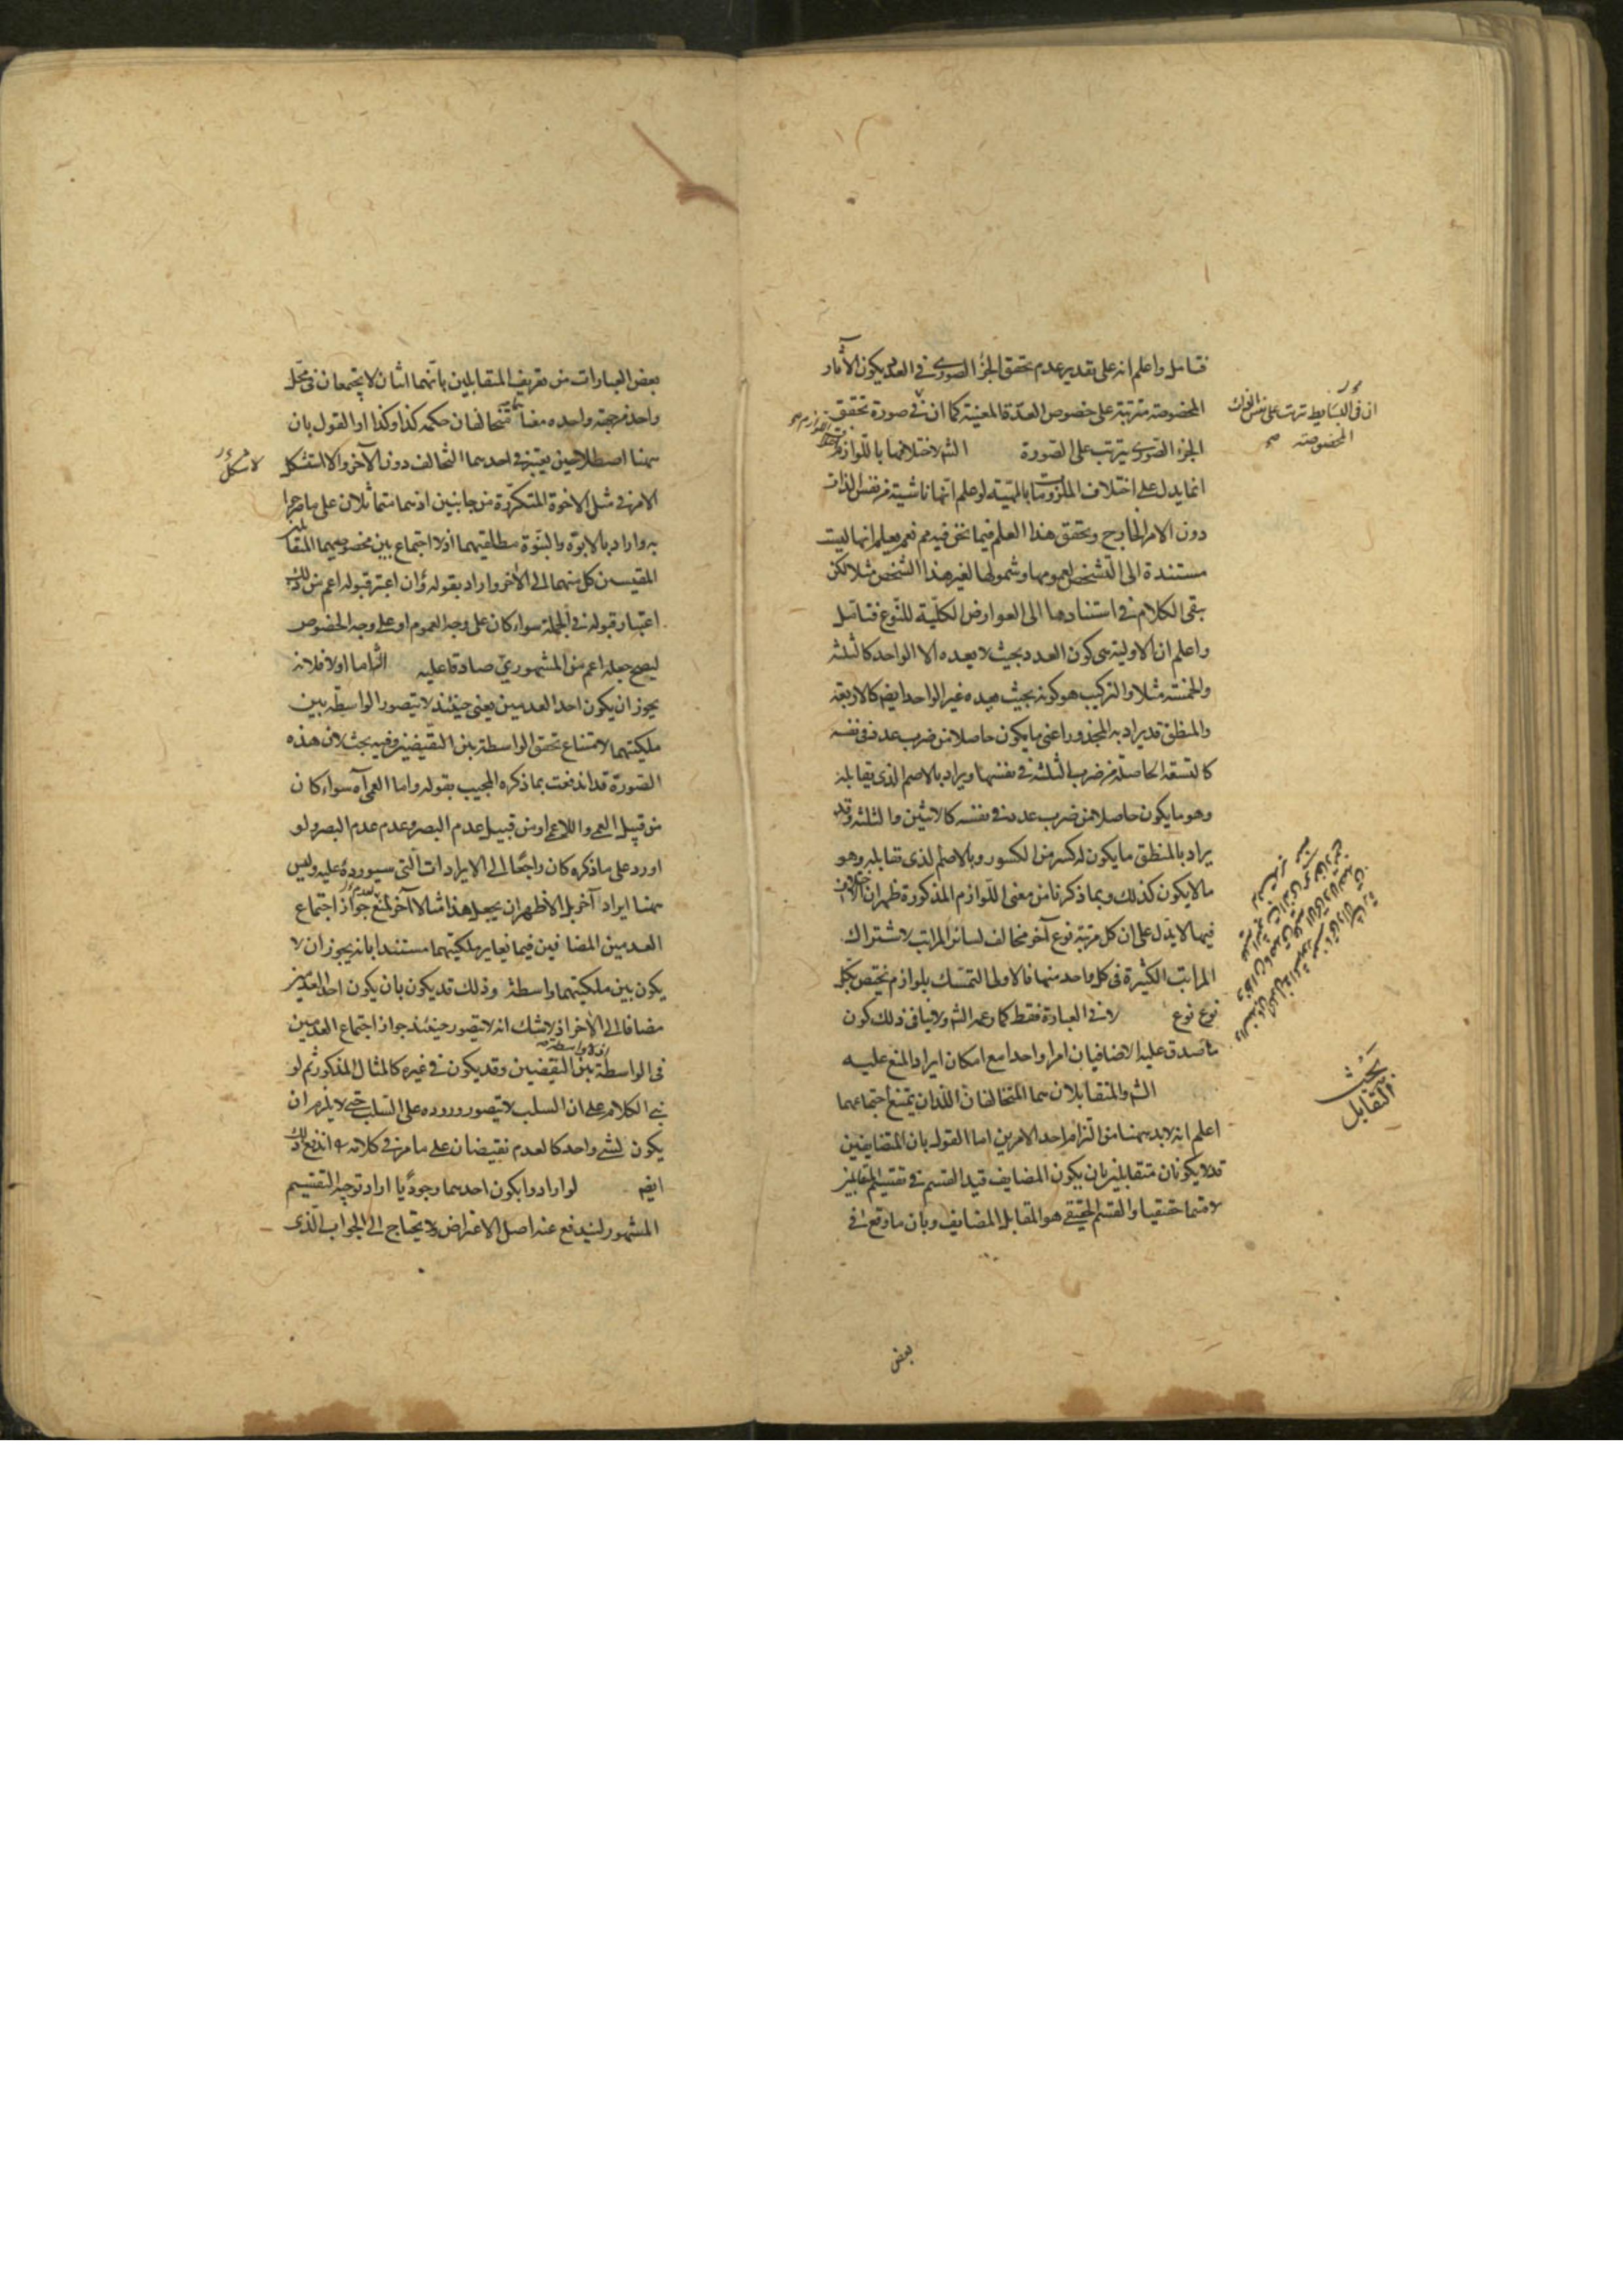 فتامل واعلم انه على تقدير عدم تحقق الجزء الصوري في العدد يكون الآثار
المخصوصة مترتبة على خصوص العدة المعينة كما ان في صورة تحقق
الجزء الصوري يترتب على الصورة الش لاختلافهما باللوازم
انما يدل على اختلاف الملزومات بالمهية لو علم انها ناشية من نفس الذات
دون الامر الخارج وتحقق هذا العلم فيما نحن فيه مم نعم يعلم انها ليست
مستندة الى التشخص لعمومها وشمولها لغير هذا الشخص مثلا لكن
بقى الكلام في استنادها الى العوارض الكلية للنوع فتامل
واعلم ان الاولية هي كون العدد بحيث لا يعده الا الواحد كالثلثة
والخمسة مثلا والتركيب هو كونه بحيث يعده غير الواحد ايضا كالاربعة
والمنطق قد يراد به المجذور اعني ما يكون حاصلا من ضرب عدد في نفسه
كالتسعة الحاصلة من ضرب الثلثة في نفسها ويراد بالاصم الذي يقابله
وهو ما يكون حاصلا من ضرب عدد في نفسه كالاثنين والثلثة وقد
يراد بالمنطق ما يكون له كسر من الكسور وبالاصم الذي يقابله وهو
ما لا يكون كذلك وبما ذكرنا من معنى اللوازم المذكورة ظهر ان الاختلاف
فيها لا يدل على ان كل مرتبة نوع آخر مخالف لسائر المراتب لاشتراك
المراتب الكثيرة في كل واحد منها فالاولى التمسك بلوازم تختص بكل
نوع نوع لا في العبارة فقط كما زعمه الش ولا ينافي ذلك كون
ما صدق عليه الاضافيان امرا واحدا مع امكان ايراد المنع عليه
الش والمتقابلان هما المتخالفان اللذان يمتنع اجتماعهما
اعلم انه لا بد ههنا من التزام احد الامرين اما القول بان المتضايفين
قد لا يكونان متقابلين بان يكون المضايف قيد القسم في تقسيم المتقابلين
لا قسما حقيقيا والقسم الحقيقي هو المتقابل المضايف وبان ما وقع في
ان في البسايط ترتب على نفس
المخصوصة صح
بحث
التقابل
بعض
بعض العبارات من تعريف المتقابلين بانهما اثنان لا يجتمعان في محل
واحد من جهة واحدة معناه متخالفان حكمه كذا وكذا او القول بان
ههنا اصطلاحين يعتبر في احدهما التخالف دون الآخر والا استشكل
الامر في مثل الاخوة المتكررة من جانبين اذ هما متماثلان على ما صرحوا
به واراد بالابوة والبنوة مطلقيهما اذ لا اجتماع بين مخصوصيهما المتقابلين
المقيسين كل منهما الى الآخر واراد بقوله وان اعتبر قبوله اعم من ذلك
اعتبار قبوله في الجملة سواء كان على وجه العموم او على وجه الخصوص
ليصح جعله اعم من المشهوري صادقا عليه الش اما اولا فلانه
يجوز ان يكون احد العدمين يعني حينئذ لا يتصور الواسطة بين
ملكيتهما لامتناع تحقق الواسطة بين النقيضين وفيه بحث لان هذه
الصورة قد اندفعت بما ذكره المجيب بقوله واما العمى آه سواء كان
من قبيل العمى واللاعمى او من قبيل عدم البصر وعدم عدم البصر ولو
اورد على ما ذكره كان راجعا الى الايرادات التي سيورده عليه وليس
ههنا ايراد آخر بل الاظهر ان يجعل هذا مثالا آخر لمنع جواز اجتماع
العدمين المضافين فيما يغاير ملكيتهما مستندا بانه يجوز ان لا
يكون بين ملكيتهما واسطة وذلك قد يكون بان يكون احد العدمين
مضافا الى الآخر اذ لا شك انه لا يتصور حينئذ جواز اجتماع العدمين
في الواسطة بين النقيضين وقد يكون في غيره كالمثال المذكور ثم لو
بني الكلام على ان السلب لا يتصور وروده على السلب حتى لا يلزم ان
يكون لشيء واحد كالعدم نقيضان على ما مر في كلامه اندفع ذلك
ايضا لو ارادوا بكون احدهما وجوديا اراد توجيه التقسيم
المشهور ليندفع عنه اصل الاعتراض ولا يحتاج الى الجواب الذي